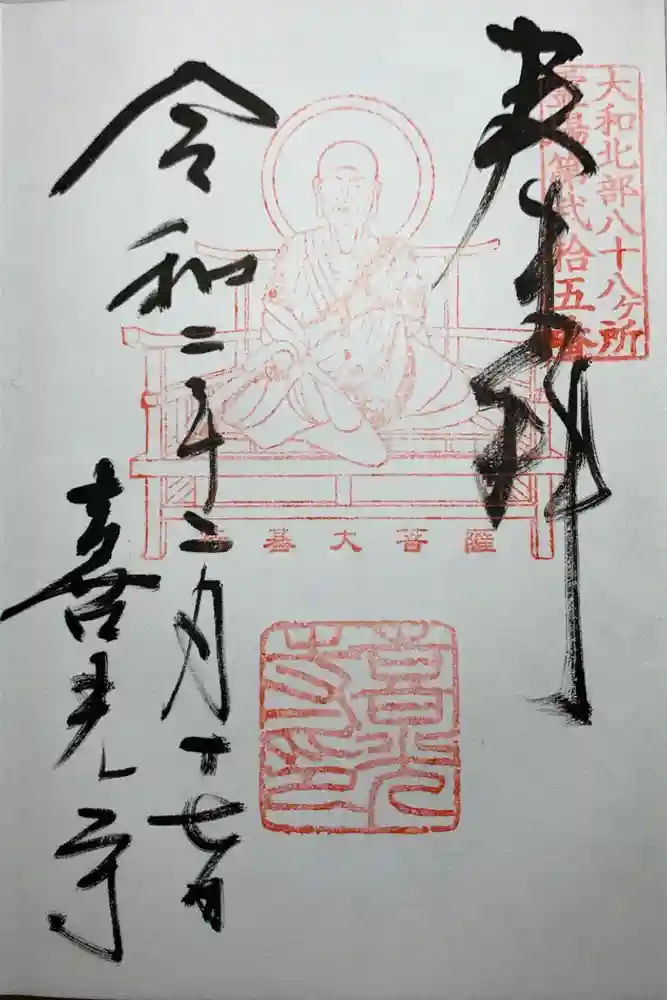 奉拝
大和北部八十八ヶ所
霊場第弐拾五番
行基大菩薩
喜光
寺印
令和二年二月十七日
喜光寺